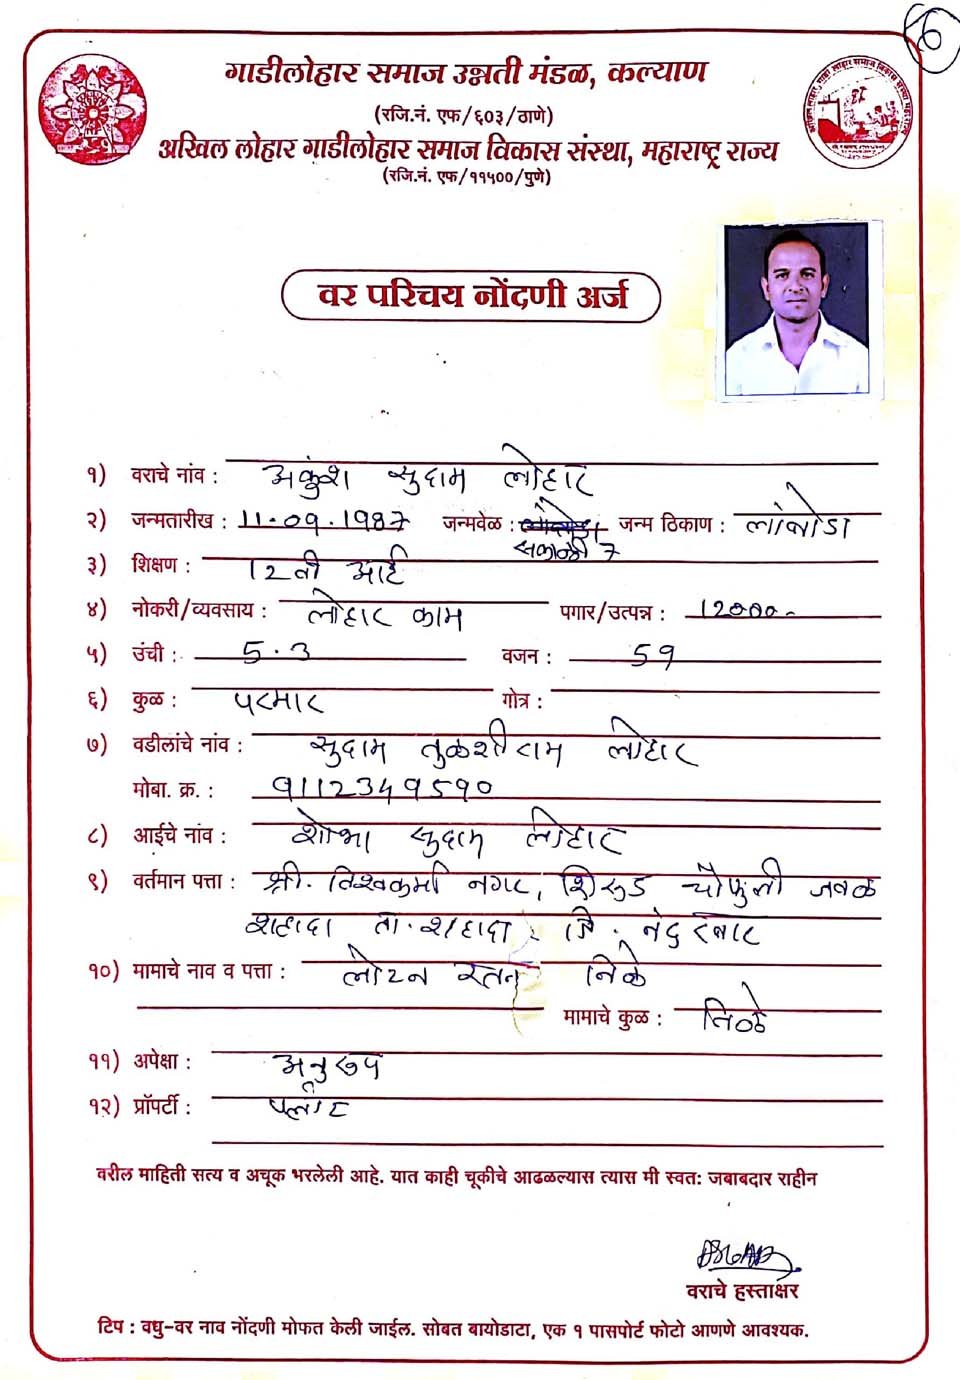 6
गाडीलोहार समाज उन्नती मंडळ, कल्याण
(रजि.नं. एफ/६०३/ठाणे)
अखिल लोहार गाडीलोहार समाज विकास संस्था, महाराष्ट्र राज्य
(रजि.नं. एफ/११५००/पुणे)
वर परिचय नोंदणी अर्ज
१) वराचे नांव : अकुंश सुदाम लोहार
२) जन्मतारीख : 11.09.1987 जन्मवेळ : सकाळी 7 जन्म ठिकाण : लांबोळा
३) शिक्षण : 12वी आर्ट
४) नोकरी/व्यवसाय : लोहार काम पगार/उत्पन्न : 12000-
५) उंची : 5.3 वजन : 59
६) कुळ : परमार गोत्र :
७) वडीलांचे नांव : सुदाम तुळशीराम लोहार
मोबा. क्र. :
८) आईचे नांव : शोभा सुदाम लोहार
९) वर्तमान पत्ता : श्री. विश्वकर्मा नगर, शिरुड चौफुली जवळ
शहादा ता. शहादा जि. नंदुरबार
१०) मामाचे नाव व पत्ता : लोटन रतन
मामाचे कुळ :
११) अपेक्षा : अनुरूप
१२) प्रॉपर्टी : प्लॉट
वरील माहिती सत्य व अचूक भरलेली आहे. यात काही चूकीचे आढळल्यास त्यास मी स्वतः जबाबदार राहीन
वराचे हस्ताक्षर
टिप : वधु-वर नाव नोंदणी मोफत केली जाईल. सोबत बायोडाटा, एक १ पासपोर्ट फोटो आणणे आवश्यक.